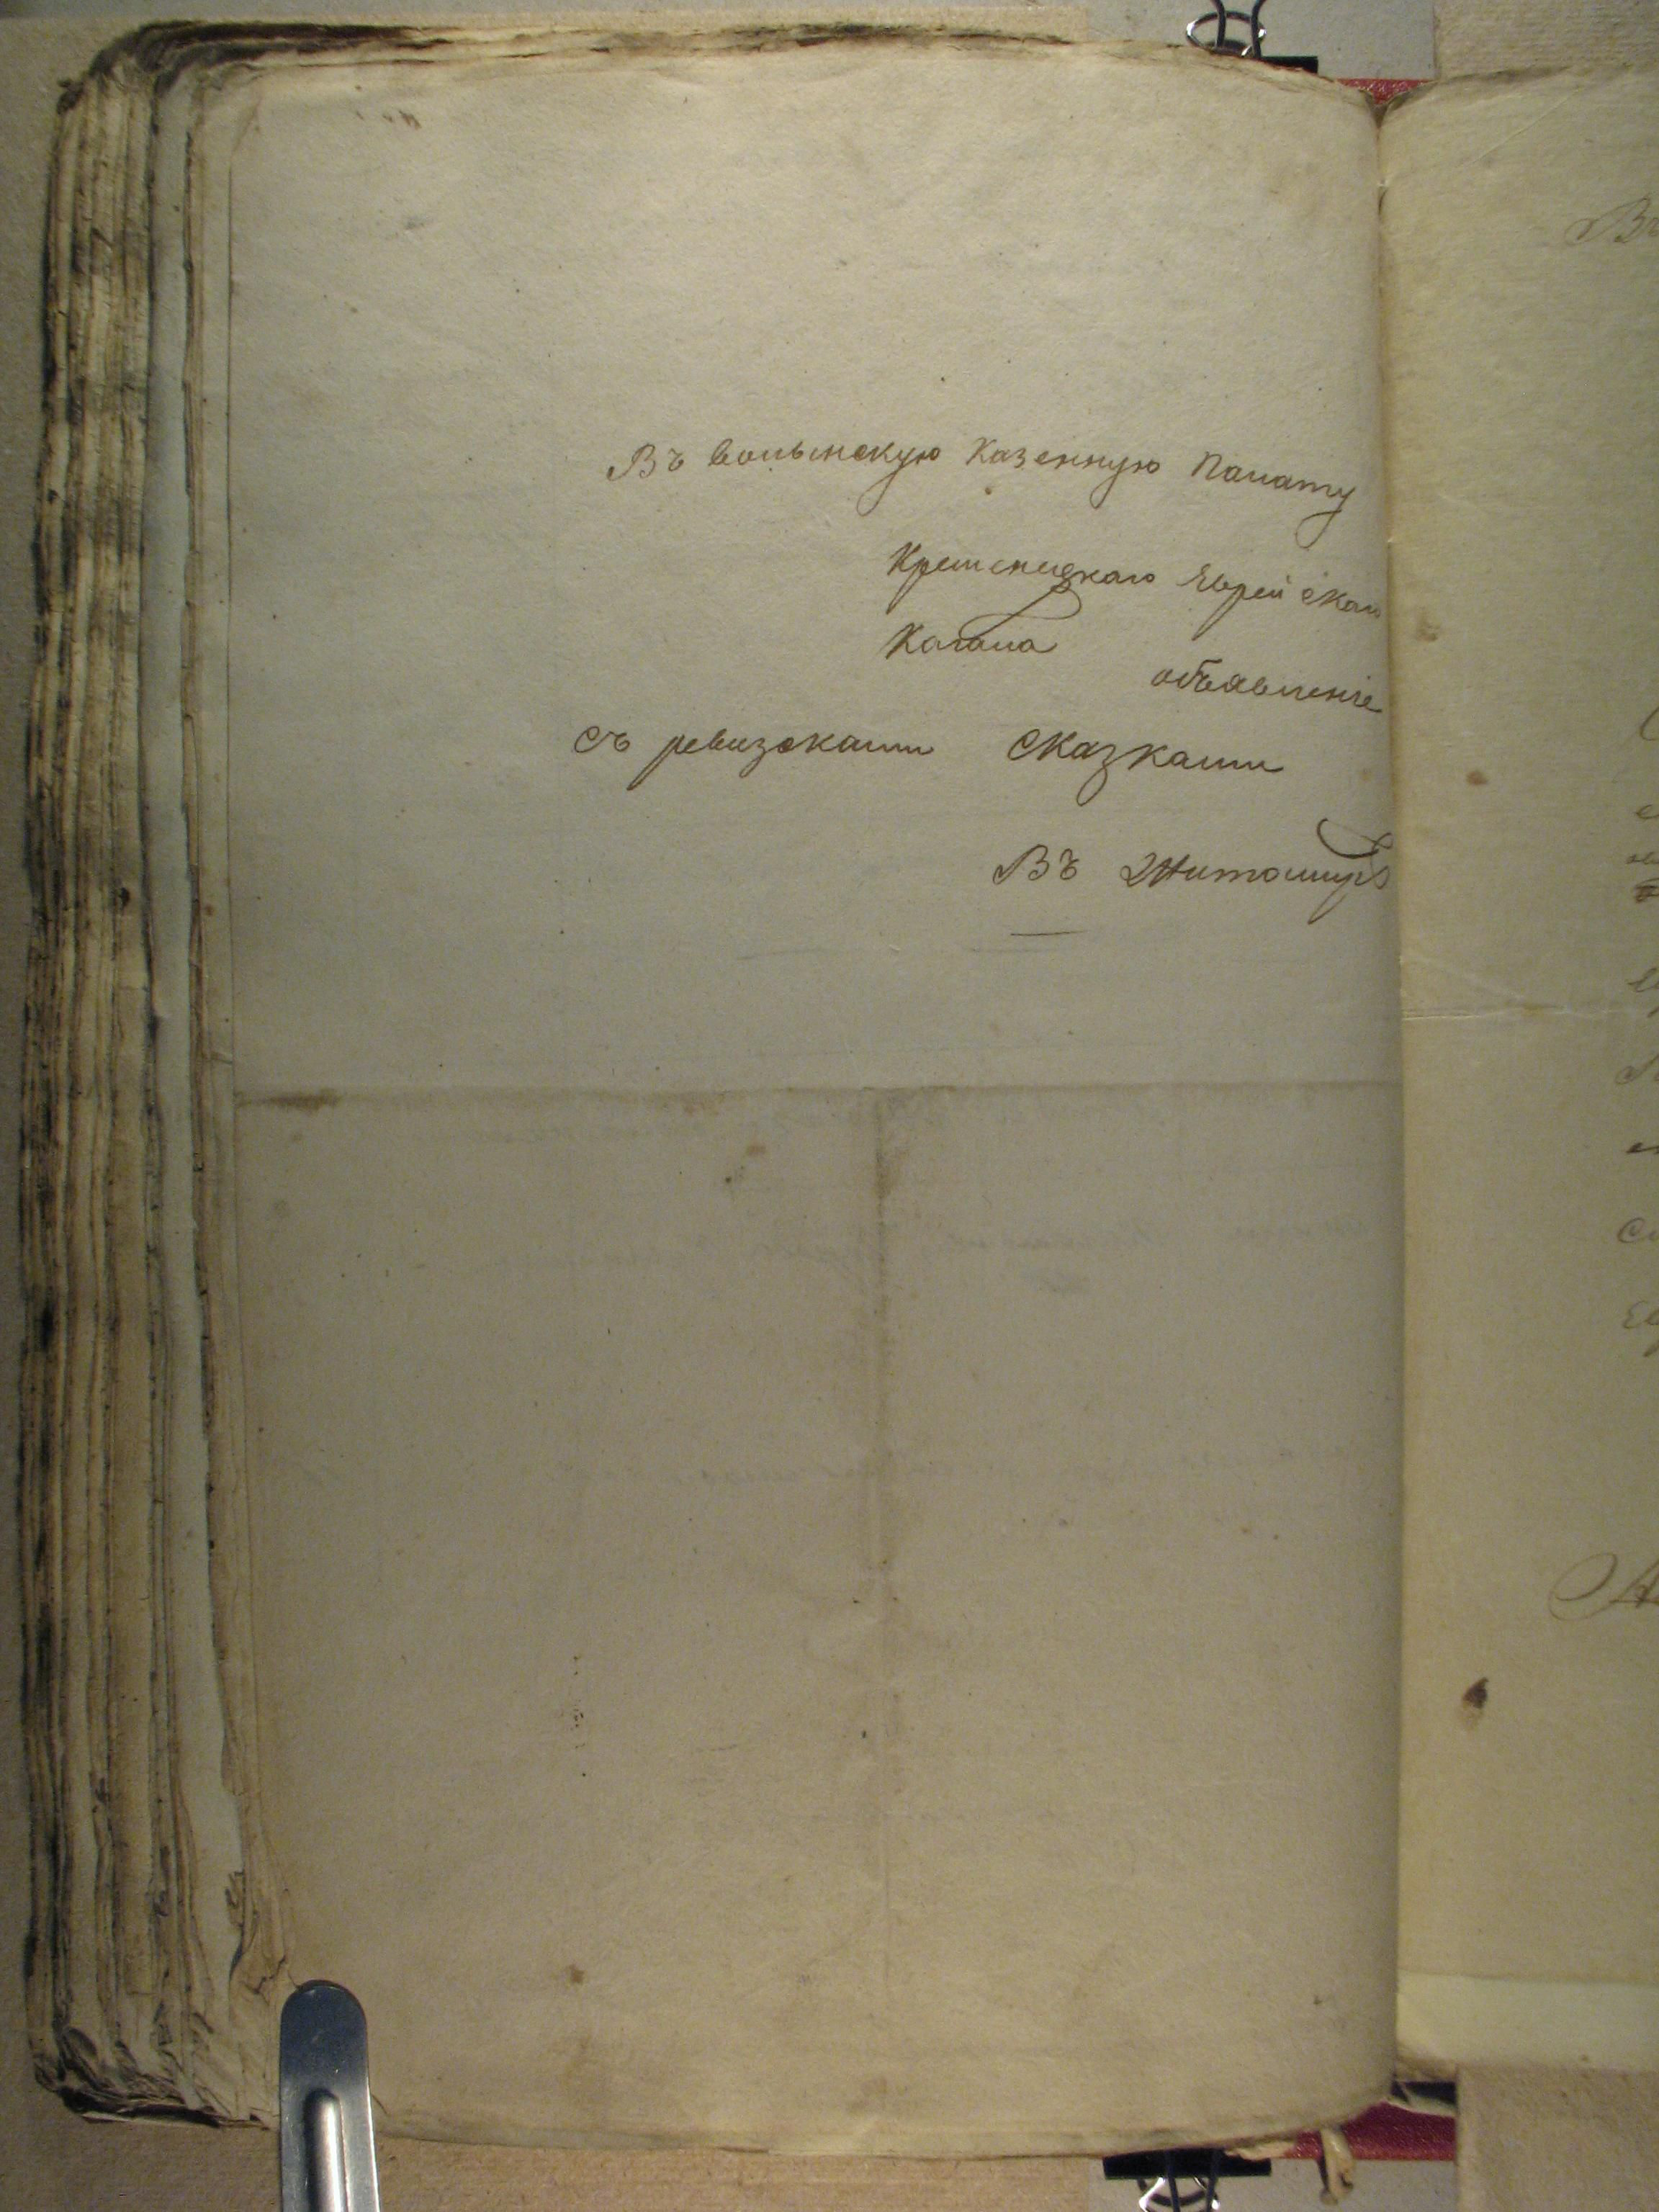 Въ волынскую Казенную Палату
Кременецкаго Еврейскаго
Кагала
объявленіе
съ ревизскими Сказками
Въ Житомирѣ